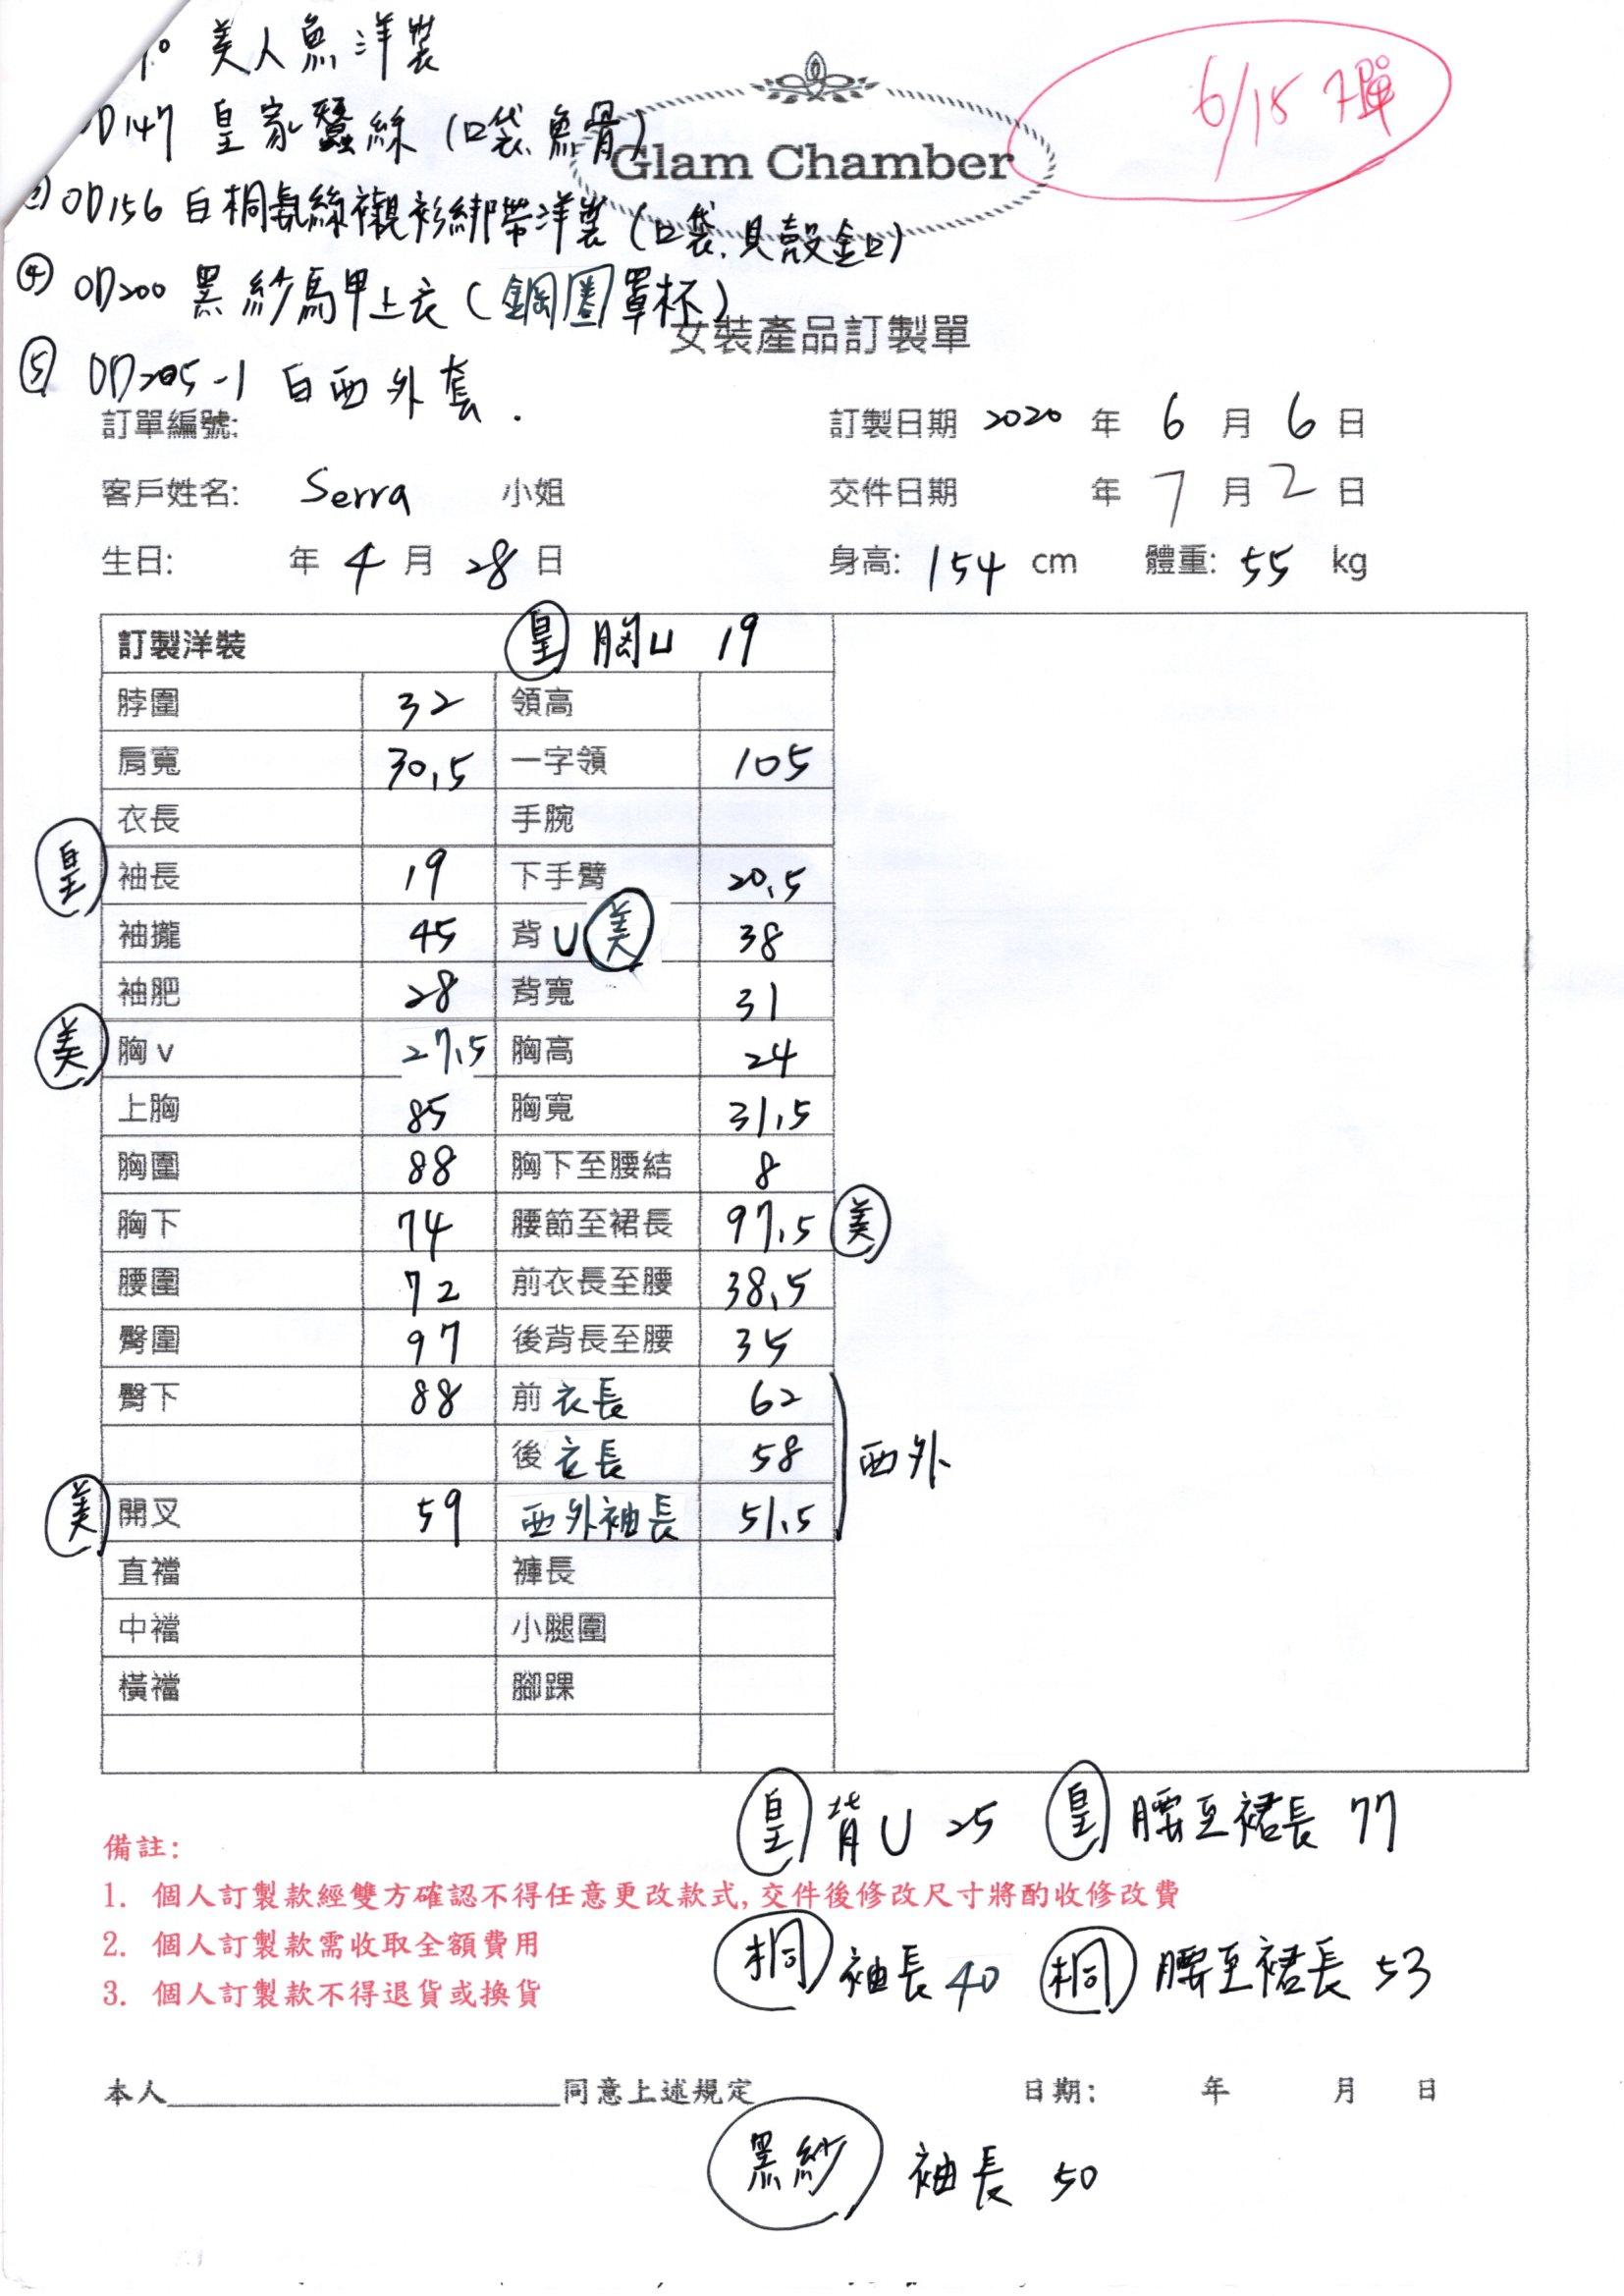 美人魚洋裝
D147 皇家蠶絲 (口袋.魚骨)
OD156 白桐氨絲襯衫綁帶洋裝 (口袋.貝殼金口)
④ OD200 黑紗馬甲上衣 (鋼圈罩杯)
⑤ OD205-1 白西外套.
6/15
Glam Chamber
女裝產品訂製單
訂單編號:
訂製日期 2020 年 6 月 6 日
客戶姓名: Serra 小姐
交件日期 年 7 月 2 日
生日: 年 4 月 28 日
身高: 154 cm 體重: 55 kg
訂製洋裝 皇 胸U 19
脖圍 32 領高
肩寬 30.5 一字領 105
衣長 手腕
皇 袖長 19 下手臂 20.5
袖攏 45 背 U 美 38
袖肥 28 背寬 31
美 胸v 27.5 胸高 24
上胸 85 胸寬 31.5
胸圍 88 胸下至腰結 8
胸下 74 腰節至裙長 97.5 美
腰圍 72 前衣長至腰 38.5
臀圍 97 後背長至腰 35
臀下 88 前 衣長 62
後 衣長 58 西外
美 開叉 59 西外袖長 51.5
直襠 褲長
中襠 小腿圍
橫襠 腳踝
皇 背U 25 皇 腰至裙長 77
備註:
1. 個人訂製款經雙方確認不得任意更改款式,交件後修改尺寸將酌收修改費
2. 個人訂製款需收取全額費用
3. 個人訂製款不得退貨或換貨
桐 袖長 40 桐 腰至裙長 53
本人 同意上述規定 日期: 年 月 日
黑紗 袖長 50